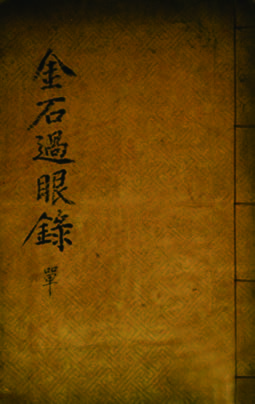 金石過眼錄 單